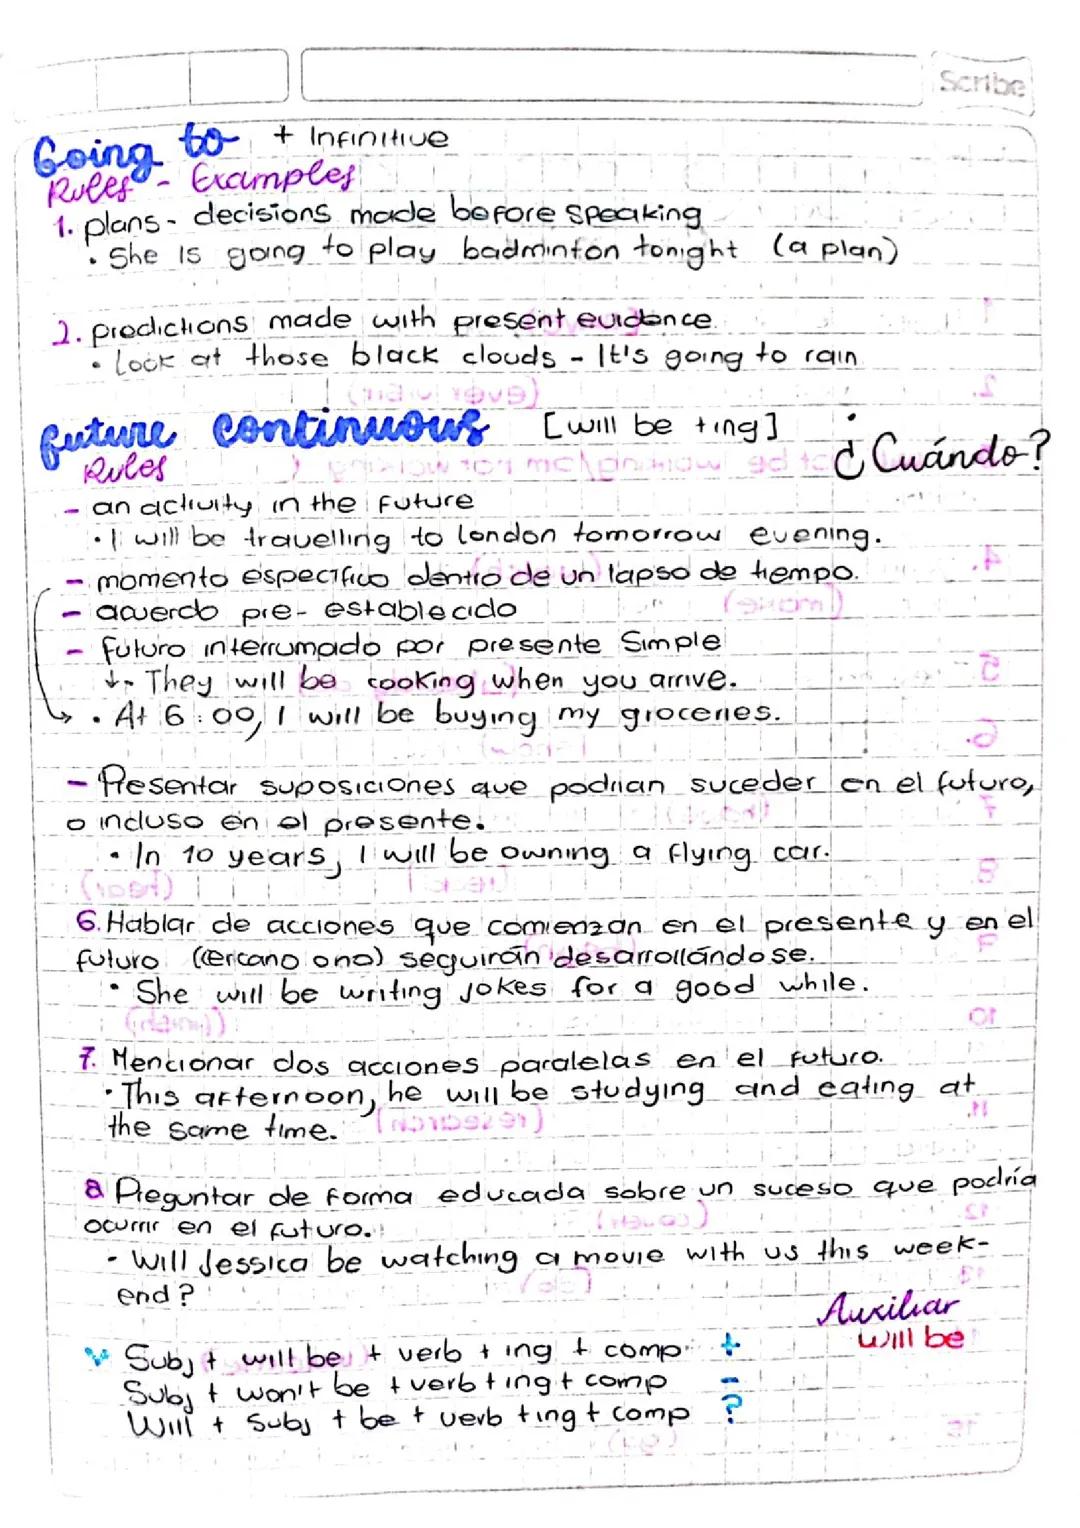 Scribe
Going to + Infinitive
Rules - Examples
1. plans - decisions made before speaking
• She is going to play badminton tonight (a plan)
2. predictions made with present evidence
• Look at those black clouds - It's going to rain
future continuous [will be +ing]
¿Cuándo?
Rules
- an activity in the future
• I will be travelling to london tomorrow evening.
- momento especifico dentro de un lapso de tiempo.
- acuerdo pre-establecido
- futuro interrumpido por presente Simple
↓ - They will be cooking when you arrive.
→ • At 6:00, I will be buying my groceries.
- Presentar suposiciones que podrian suceder en el futuro,
o incluso en el presente.
• In 10 years, I will be owning a flying car.
6. Hablar de acciones que comienzan en el presente y en el
futuro (cercano o no) seguirán desarrollándose.
• She will be writing jokes for a good while.
7. Mencionar dos acciones paralelas en el futuro.
• This afternoon, he will be studying and eating at
the same time.
8 Preguntar de forma educada sobre un suceso que podría
ocurrir en el futuro.
• Will Jessica be watching a movie with us this week-
end?
Auxiliar
will be
Subj + will be + verb + ing + comp. +
Subj + won't be + verb + ing + comp -
Will + Subj + be + verb + ing + comp ?